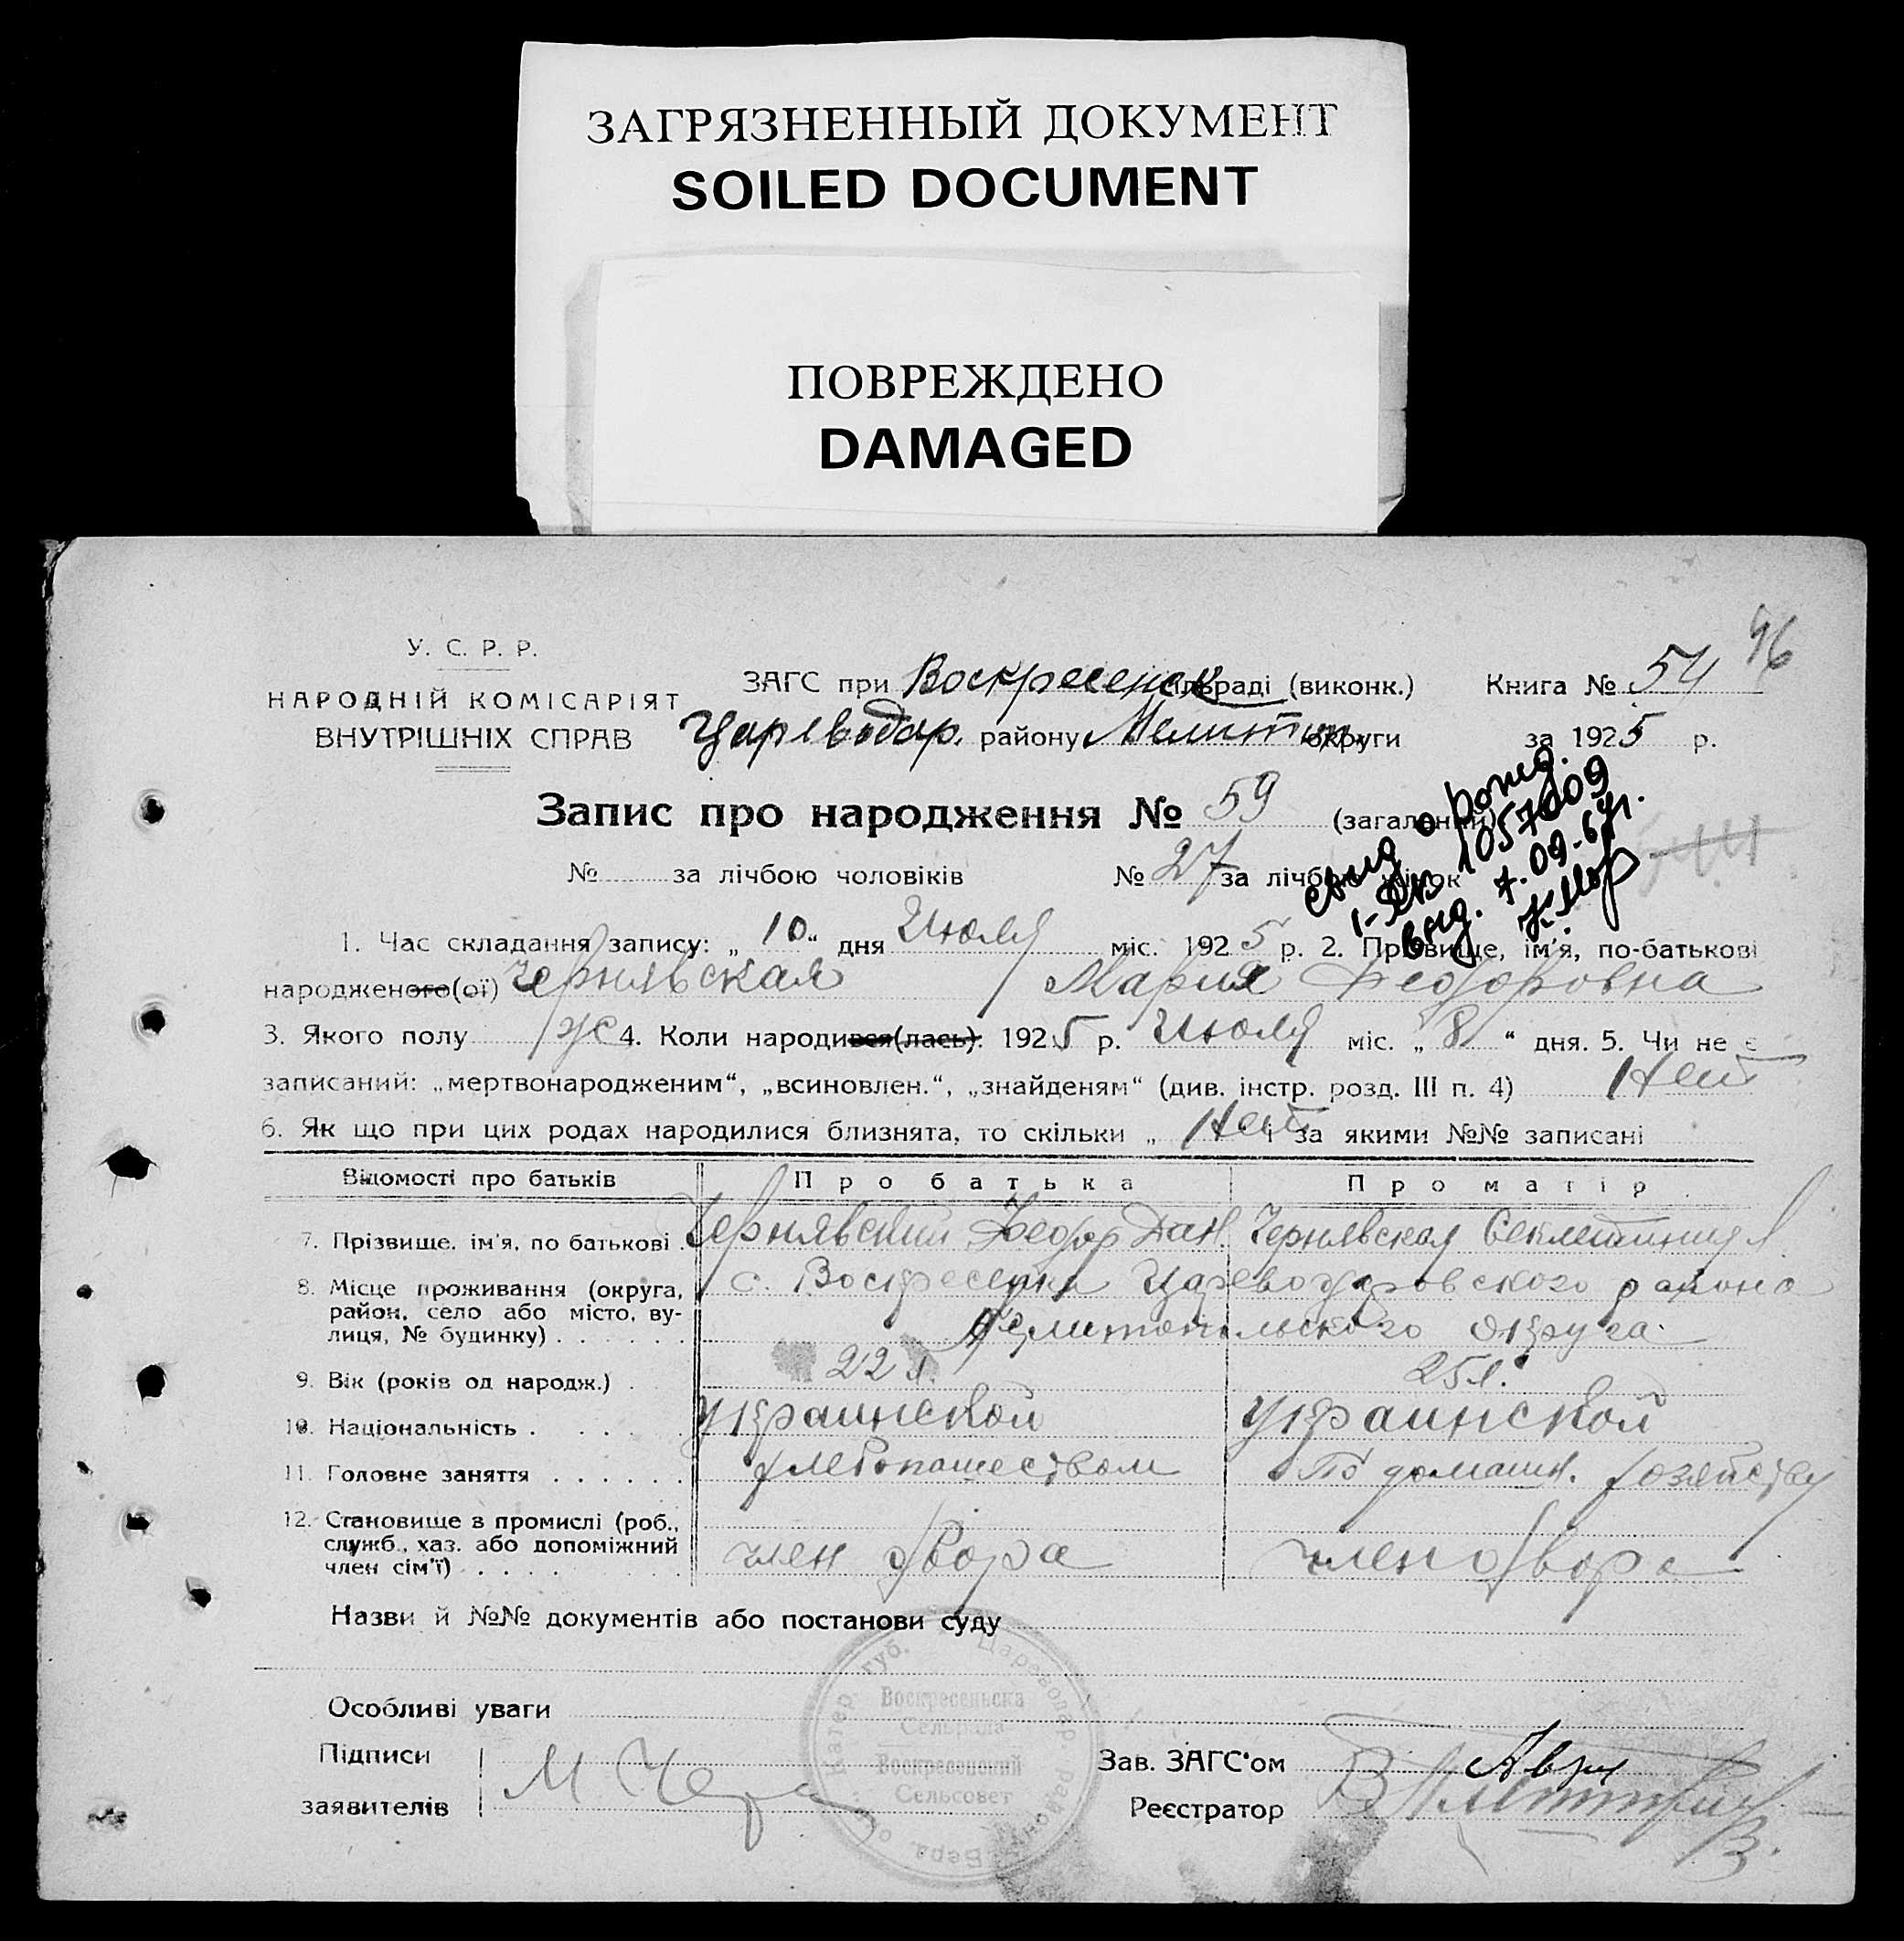 ЗАГРЯЗНЕННЫЙ ДОКУМЕНТ
SOILED DOCUMENT
ПОВРЕЖДЕНО
DAMAGED
96
У. С. Р. Р.
НАРОДНІЙ КОМІСАРІЯТ
ВНУТРІШНІХ СПРАВ
ЗАГС при Воскресенск сільраді (виконк.) Книга № 54
Цареводар. району Мелитоп. округи за 1925 р.
Запис про народження № 59 (загальний)
№ за лічбою чоловіків № 27 за лічбою жінок
свид о рожд.
выд. 7.09-64г.
1. Час складання запису: „10“ дня Июля міс. 1925 р. 2. Прізвище, ім'я, по-батькові
народженого(ої) Чернявская Мария Федоровна
3. Якого полу ж 4. Коли народився(лась). 1925 р. Июля міс. „8“ дня. 5. Чи не є
записаний: „мертвонародженим“, „всиновлен.“, „знайденям“ (див. інстр. розд. III п. 4) Нет
6. Як що при цих родах народилися близнята, то скільки „ Нет і за якими №№ записані
Відомості про батьків Про батька Про матір
7. Прізвище, ім'я, по батькові . Чернявский Федор Дан. Чернявская Секлетиния
8. Місце проживання (округа, район, село або місто, вулиця, № будинку) . . . . . . с. Воскресенка Цареводаровского района
Мелитопольского округа
9. Вік (років од народж.) . 22 л. 25 л.
10. Національність . . . . . украинской украинской
11. Головне заняття . . . . . . хлебопашеством По домашн. хозяйству
12. Становище в промислі (роб., служб., хаз. або допоміжний член сім'ї) . . . . член двора член двора
Назви й №№ документів або постанови суду
Особливі уваги
Воскресеньска
Сельрада
Воскресенский
Сельсовет
Підписи
заявителів М Чер
Зав. ЗАГС'ом
Реєстратор